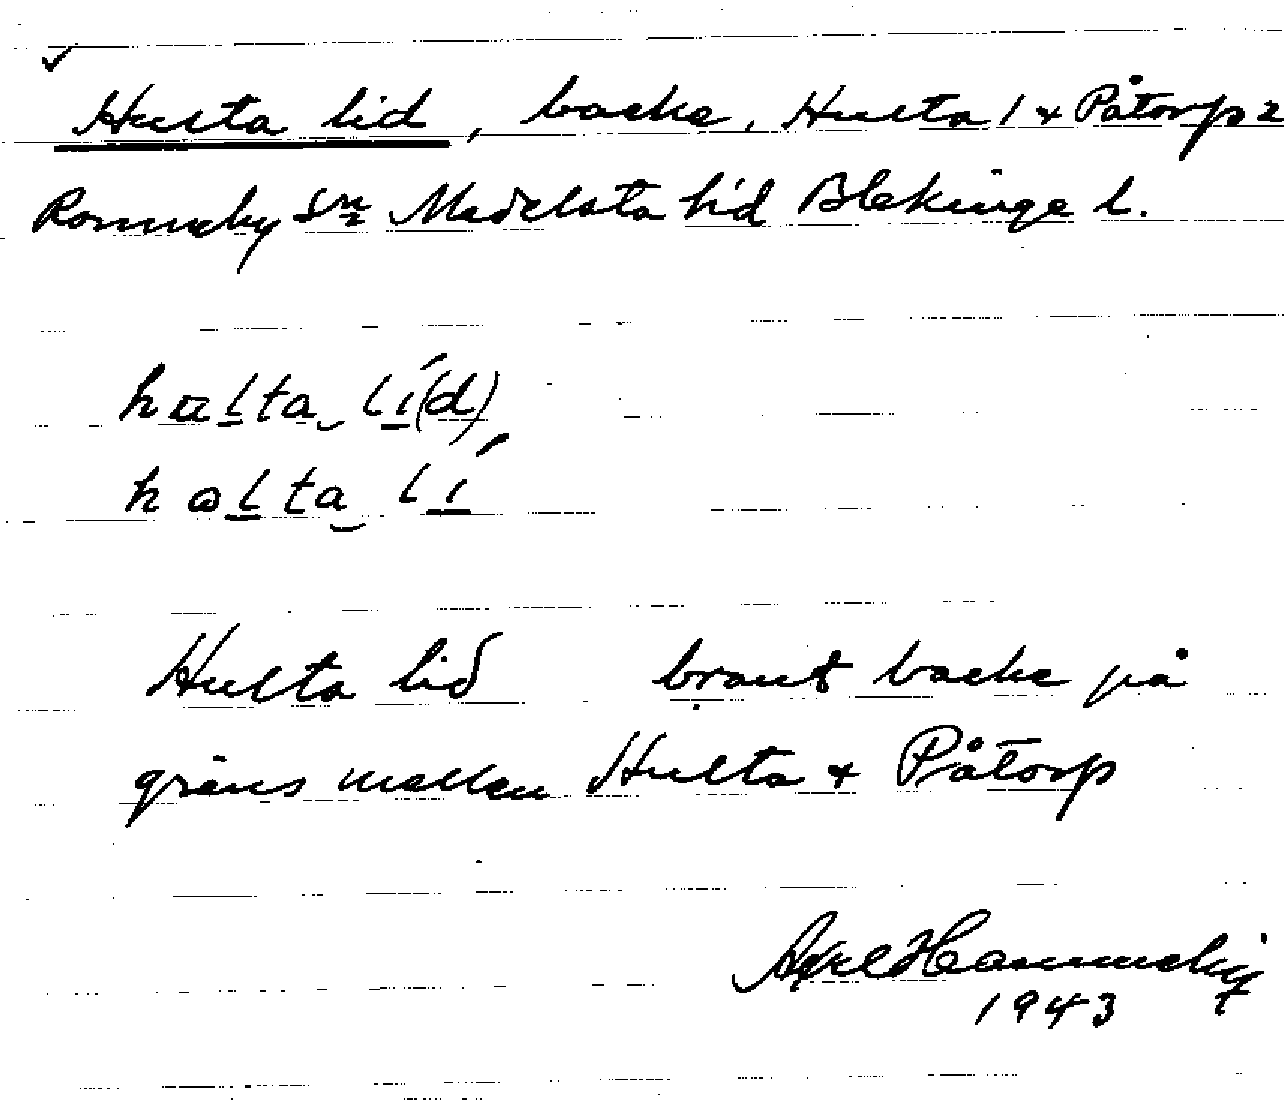 Hulta lid, backe, Hulta 1 & Påtorp 2
Ronneby sn Medelsta hd Blekinge l.
lí(d)
lí
Hulta lid brant backe på
gräns mellan Hulta & Påtorp
Axel
1943